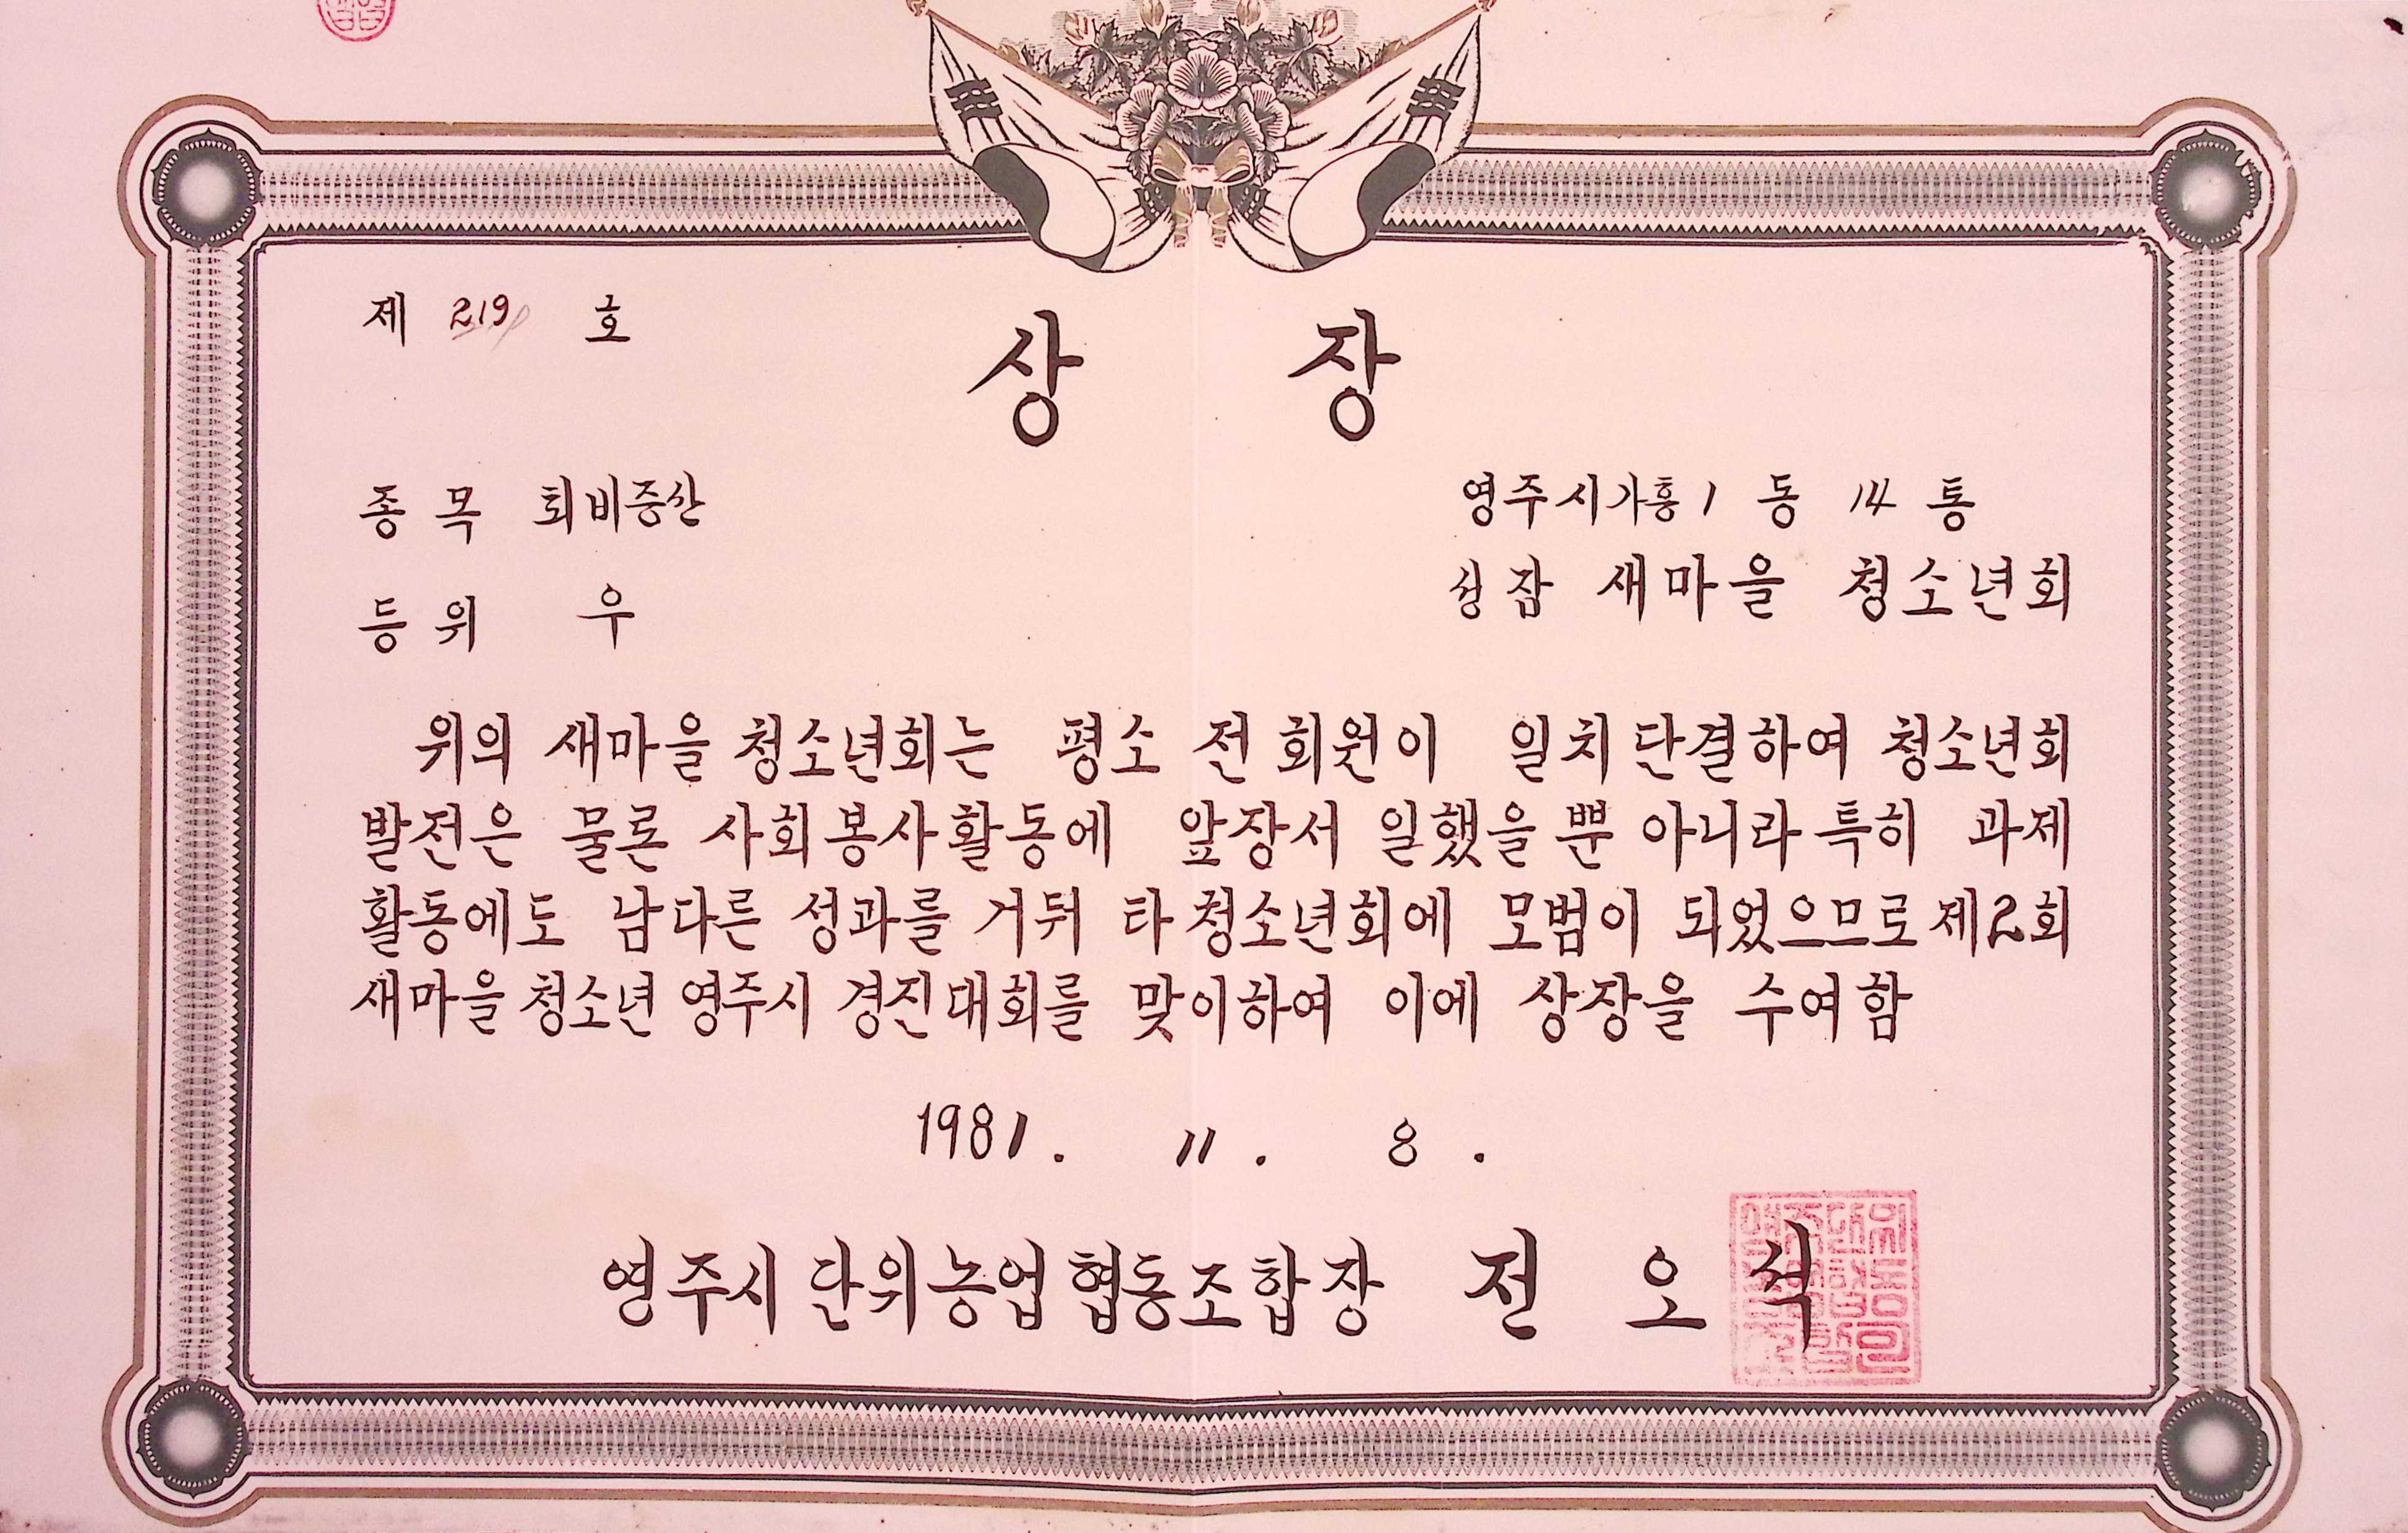 제 219 호
상 장
종 목 퇴비증산
영주시가흥1 동 14 통
등 위 우
상잠 새마을 청소년회
위의 새마을 청소년회는 평소 전 회원이 일치단결하여 청소년회
발전은 물론 사회봉사활동에 앞장서 일했을 뿐 아니라 특히 과제
활동에도 남다른 성과를 거둬 타 청소년회에 모범이 되었으므로 제2회
새마을 청소년 영주시 경진대회를 맞이하여 이에 상장을 수여함
1981. 11. 8.
영주시 단위농업협동조합장 전 오 석